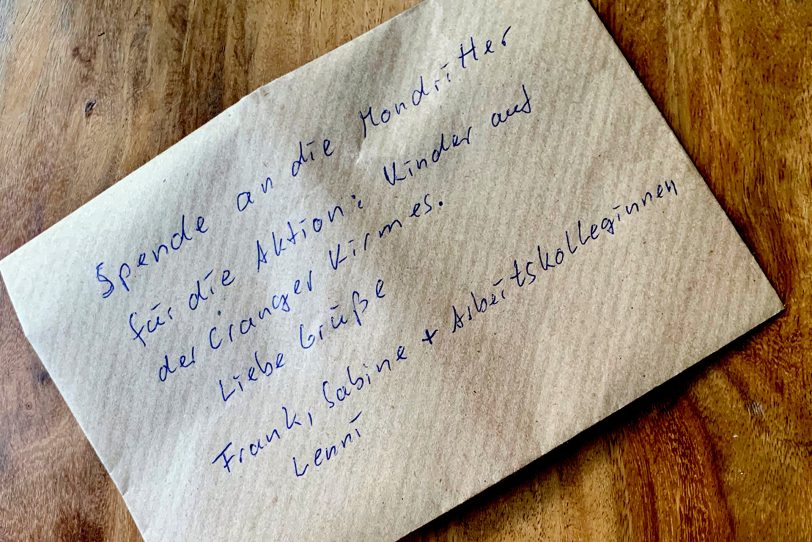 Spende an die Mondritter
für die Aktion: Kinder auf
der Cranger Kirmes.
Liebe Grüße
Frank, Sabine + Arbeitskolleginnen
Lenni